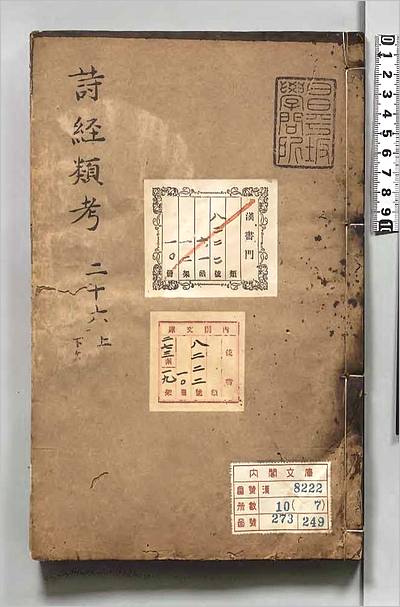 詩経類考 二十六 上
下
昌平坂
學問所
漢書門
類
八二二二號
函
架
一〇冊
內閣文庫
漢書
八二二二號
一〇冊
二七三函
一九架
內閣文庫
番號 漢 8222
冊數 10( 7)
函號 273 249
0 1 2 3 4 5 6 7 8 9